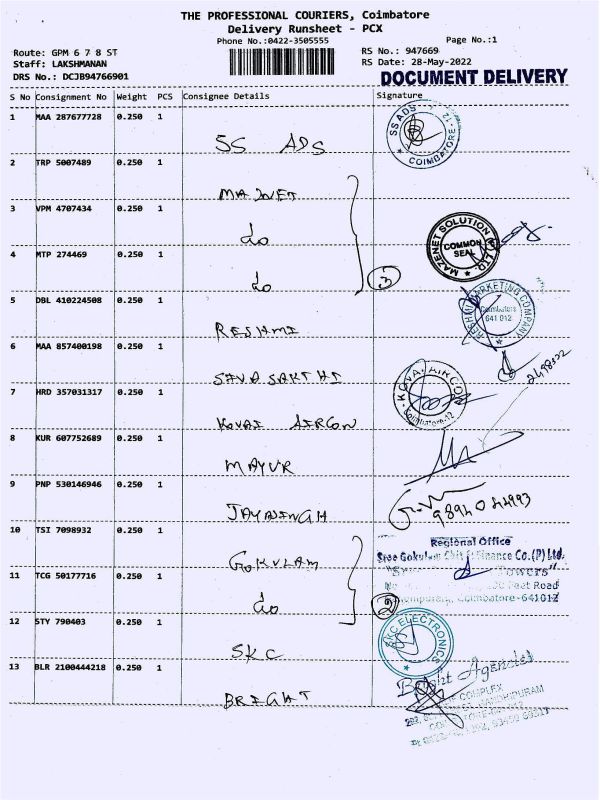 THE PROFESSIONAL COURIERS, Coimbatore
Delivery Runsheet - PCX
Phone No.:0422-3505555
Page No.:1
Route: GPM 6 7 8 ST
RS No.: 947669
Staff: LAKSHMANAN
RS Date: 28-May-2022
DRS No.: DCJB94766901
DOCUMENT DELIVERY
S No Consignment No Weight PCS Consignee Details Signature
1 MAA 287677728 0.250 1
SS ADS
SS ADS COIMBATORE-12
2 TRP 5007489 0.250 1
3 VPM 4707434 0.250 1
do
MAZENET SOLUTION COMMON SEAL
4 MTP 274469 0.250 1
do
3
5 DBL 410224508 0.250 1
RESHMI
MARKETING COMPANY Coimbatore 641 012
6 MAA 857400198 0.250 1
SIVA SAKTHI
7 HRD 357031317 0.250 1
KOVAI AIRCON
KOVAI AIRCON Coimbatore-12
8 KUR 607752689 0.250 1
MAYUR
9 PNP 530146946 0.250 1
JAYASINGH
10 TSI 7098932 0.250 1
GOKULAM
Regional Office
Sree Gokulam Chit & Finance Co.(P) Ltd.
Towers"
11 TCG 50177716 0.250 1
do
2
Feet Road
Coimbatore-641012
12 STY 790403 0.250 1
SKC
SKC ELECTRONICS
13 BLR 2100444218 0.250 1
BRIGHT
Bright Agencies
COMPLEX